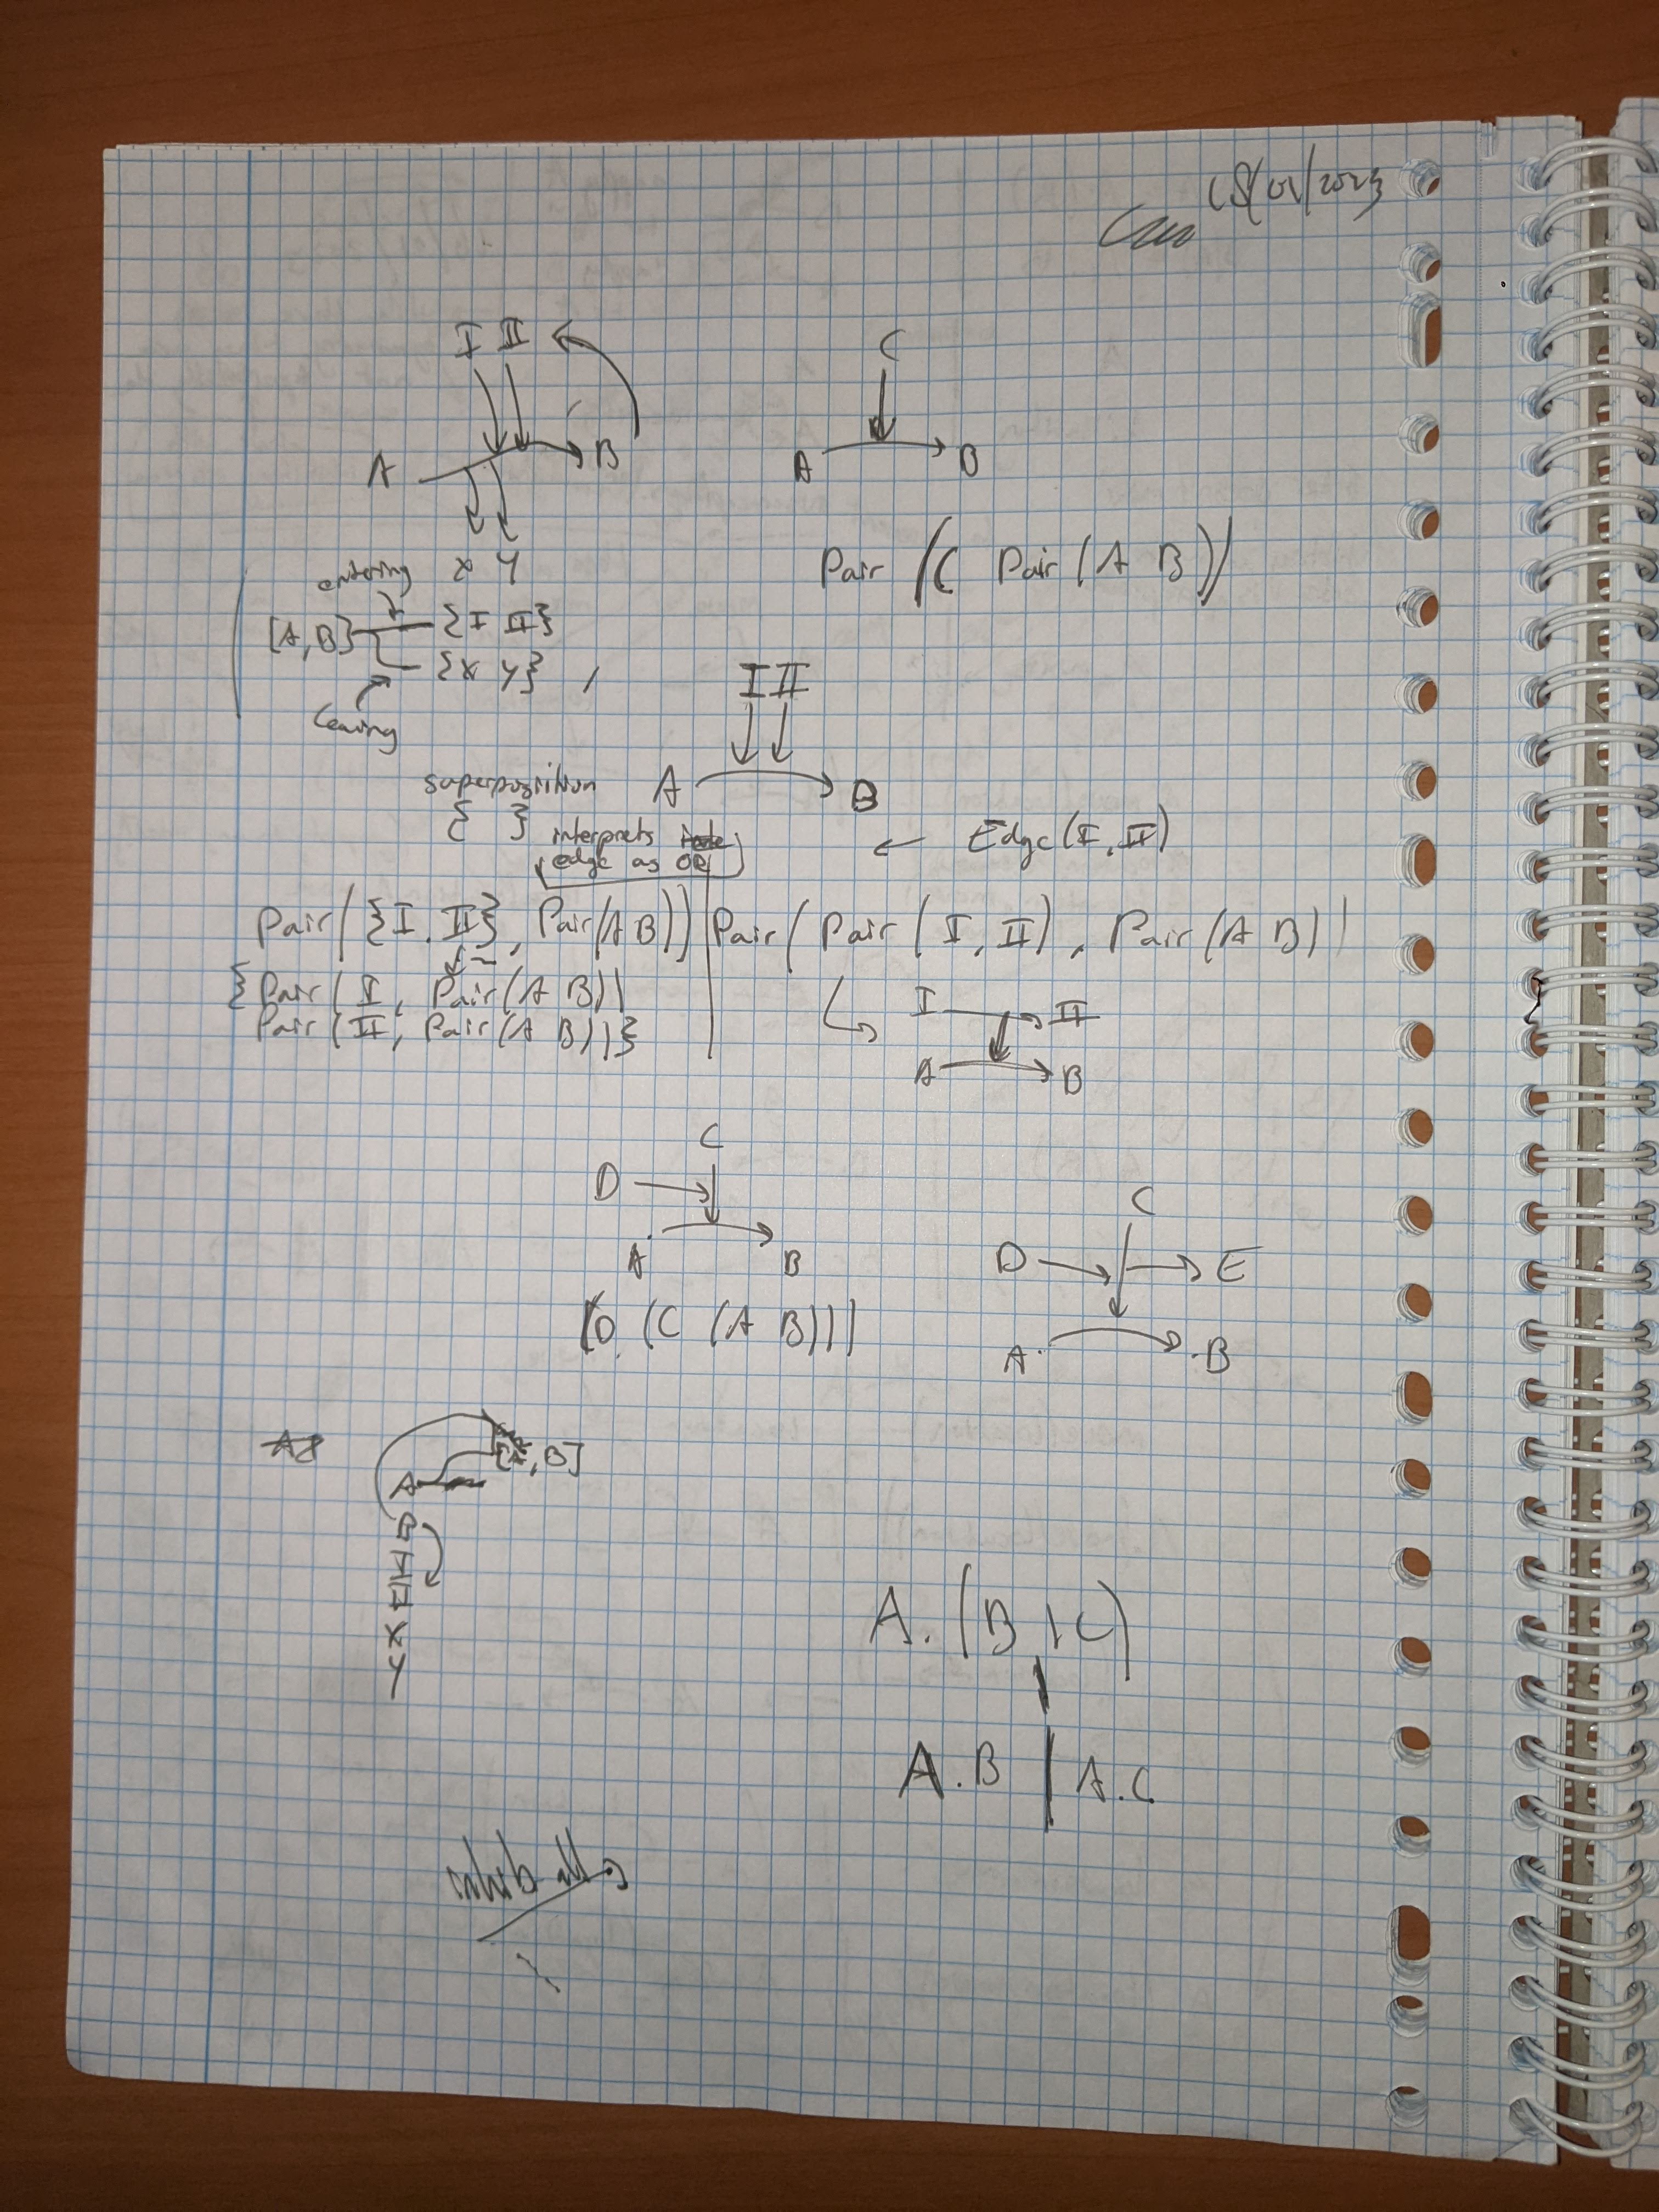 I II
C
A B
A B
X Y
Pair (C Pair (A B))
entering
[A,B] {I II}
{X Y} ,
leaving
I II
A B
superposition
{ }
interprets
edge as OR
← Edge(I, II)
Pair({I, II}, Pair(A B)) | Pair( Pair (I, II), Pair (A B))
{Pair( I, Pair(A B))
Pair( II, Pair(A B))}
I II
A B
C
D
A B
(D (C (A B)))
C
D E
A B
A
[A, B]
A
B
I
II
X
Y
A.(B | C)
A.B | A.C